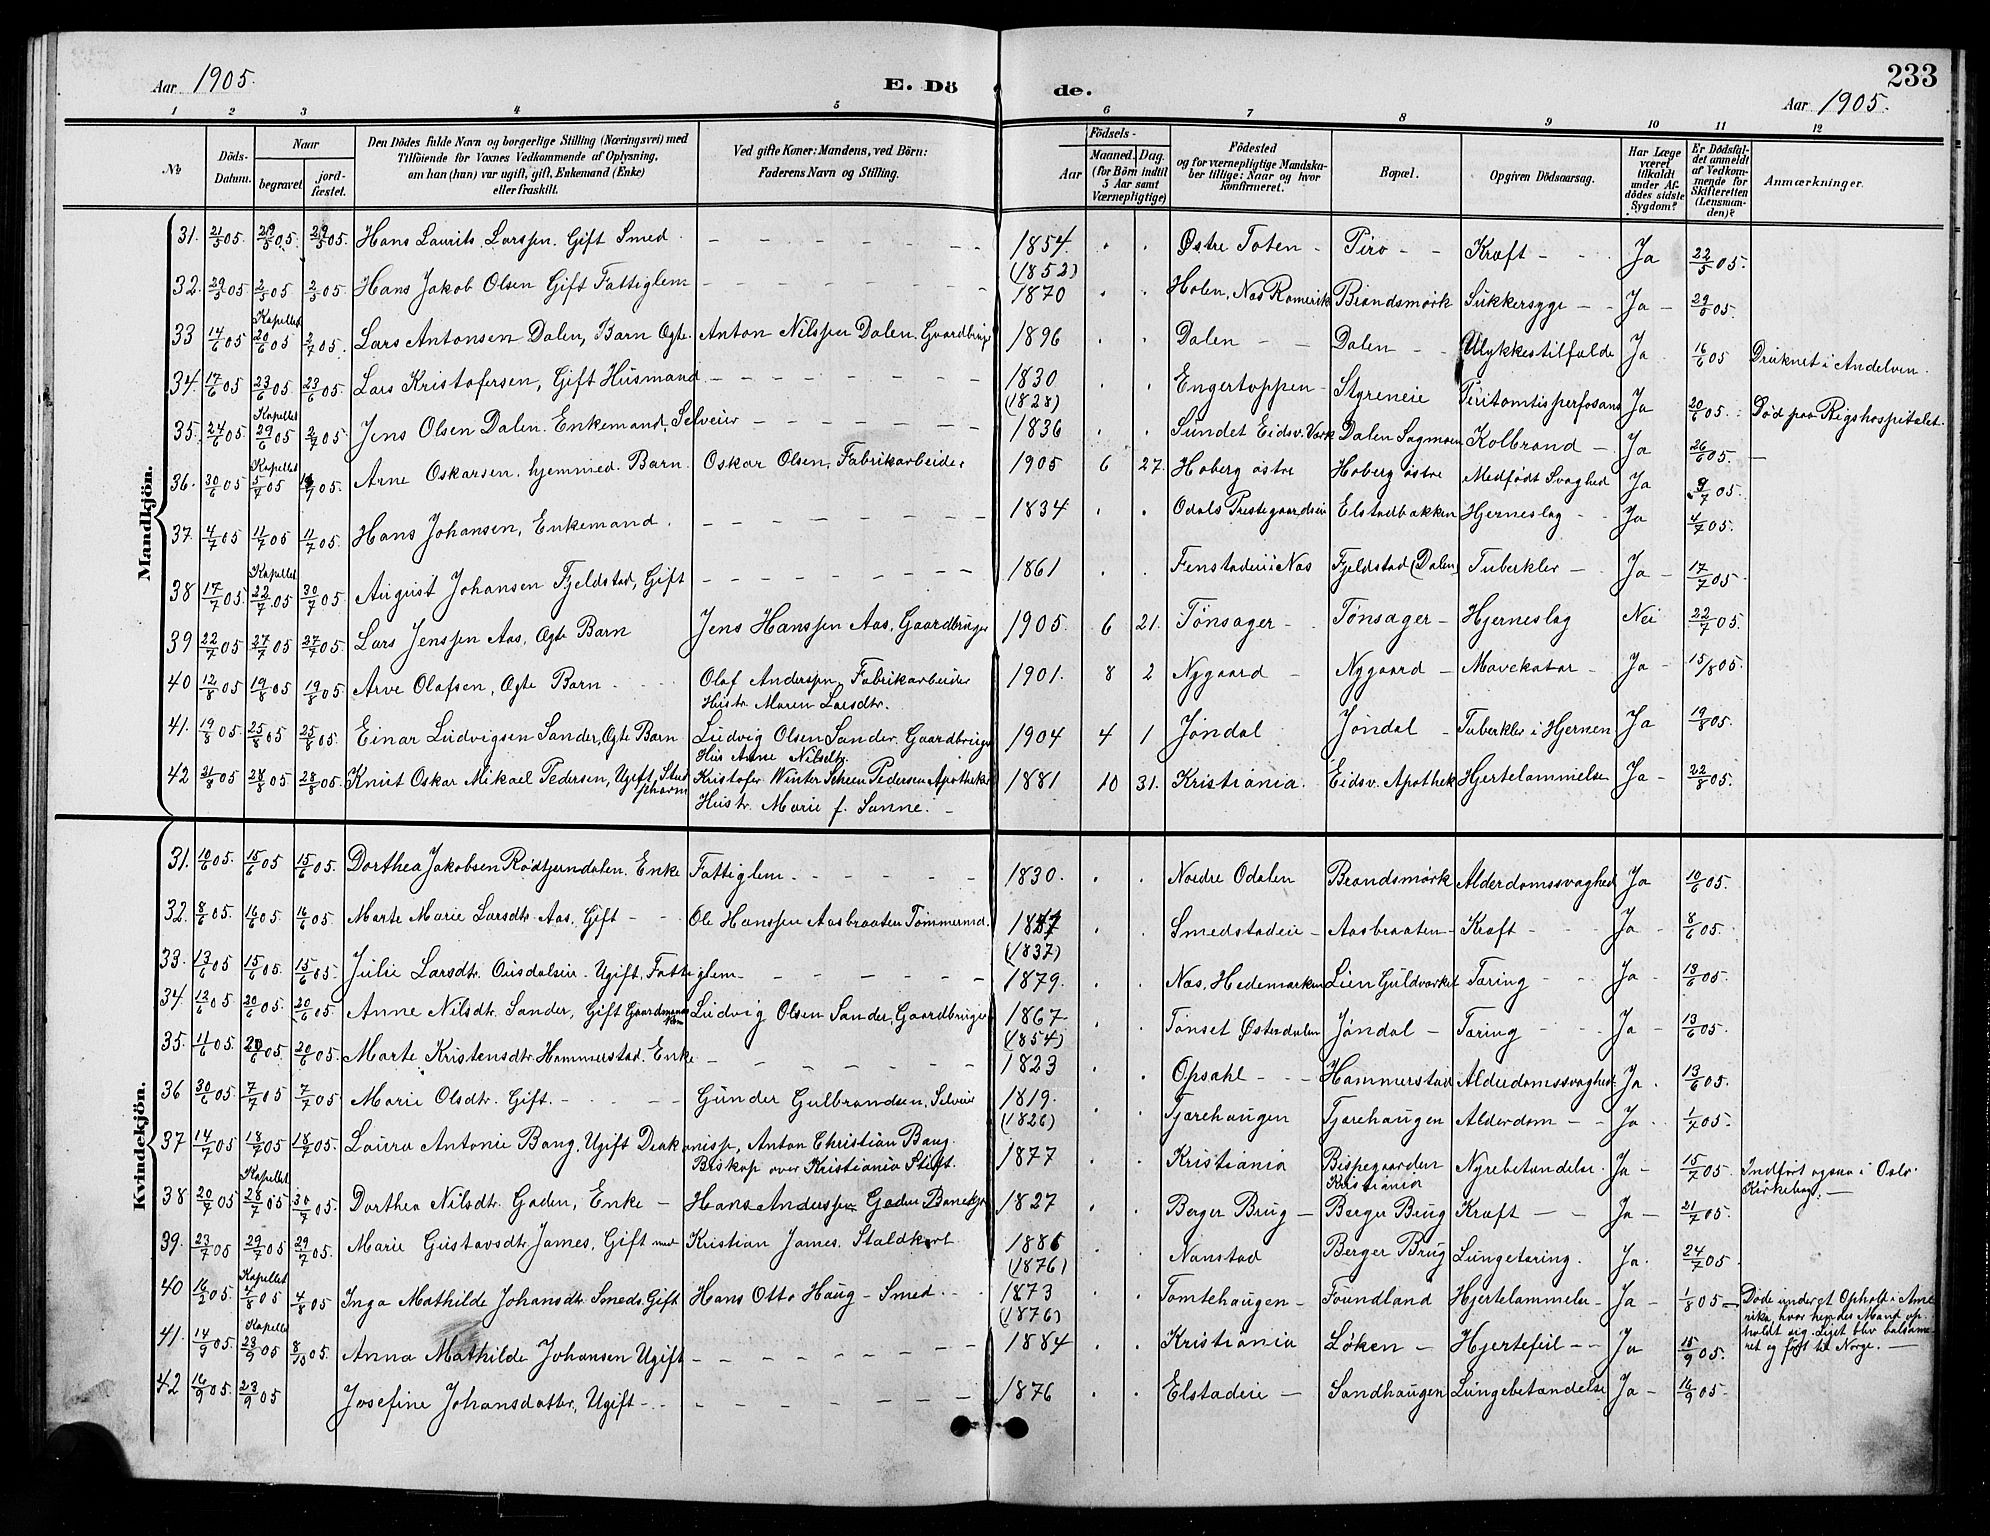 Aar 1905.
E. Dö
de.
233
Aar 1905.
1 2 3 4 5 6 7 8 9 10 11 12
No
Döds-Datum.
Naar
begravet
jord-fæstet.
Den Dödes fulde Navn og borgerlige Stilling (Næringsvei) med
Tilföiende for Voxnes Vedkommende af Oplysning,
om han (hun) var ugift, gift, Enkemand (Enke)
eller fraskilt.
Ved gifte Koner: Mandens, ved Börn:
Faderens Navn og Stilling.
Födsels-
Aar
Maaned. Dag.
(for Börn indtil
5 Aar samt
Værnepligtige)
Födested
og for værnepligtige Mandska-
ber tillige: Naar og hvor
konfirmeret.
Bopæl.
Opgiven Dödsaarsag.
Har Læge
været
tilkaldt
under Af-
dødes sidste
Sygdom?
Er Dödsfal-
det anmeldt
af Vedkom-
mende for
Skifteretten
(Lensman-
den)?
Anmærkninger.
Mandkjön.
31. 21/5 05. 29/5 05. 29/5 05. Hans Laurits Larssen. Gift Smed 1854. (1852) Østre Toten Piro Kræft Ja 22/5 05.
32. 29/5 05 2/5 05 2/5 05. Hans Jakob Olsen Gift Fattiglem 1870 Holen, Nas Romerik Brandsmørk Sukkersyge Ja 29/5 05.
33 14/6 05 Kapellet 20/6 05 2/7 05. Lars Antonsen Dalen, Barn Ægte. Anton Nilssen Dalen, Gaardbruger 1896 Dalen Dalen Ulykkestilfælde Ja 16/6 05 Druknet i Andelven.
34. 17/6 05 23/6 05 23/6 05. Lars Kristofersen, Gift Husmand 1830 (1828) Engertoppen Styreneie Peritomtis perfosans Ja 20/6 05. Død paa Rigshospitalet.
35. 24/6 05 Kapellet 29/6 05 2/7 05. Jens Olsen Dalen. Enkemand, Selveier 1836 Sundet Eidsv. Værk Dalen Sagmoen Kolbrand Ja 26/6 05.
36. 30/6 05 Kapellet 5/7 05 /7 05. Arne Oskarsen, hjemmed. Barn. Oskar Olsen, Fabrikarbeider 1905 6 27. Hoberg østre Hoberg østre Medfødt Svaghed Ja 9/7 05.
37. 4/7 05 11/7 05 11/7 05. Hans Johansen, Enkemand. 1834 Odals Prestegaardseie Elstadbakken Hjerneslag Ja 4/7 05.
38 17/7 05. Kapellet 22/7 05 30/7 05 August Johansen Fjeldstad, Gift 1861 Fenstadeie i Nas Fjeldstad (Dalen) Tuberkler Ja 17/7 05.
39 22/7 05 27/7 05 27/7 05. Lars Jenssen Aas, Ægte Barn Jens Hanssen Aas, Gaardbruger 1905 6 21. Tønsager Tønsager Hjerneslag Nei 22/7 05.
40 12/8 05 19/8 05 19/8 05. Arve Olafsen, Ægte Barn Olaf Anderssen, Fabrikarbeider
Hustr. Maren Larsdtr. 1901. 8 2 Nygaard Nygaard Mavekatar Ja 15/8 05.
41. 19/8 05 25/8 05 25/8 05. Einar Ludvigsen Sander, Ægte Barn Ludvig Olsen Sander, Gaardbruger
Hus Anne Nilsdtr. 1904 4 1 Jøndal Jøndal Tuberkler i Hjernen Ja 19/8 05.
42 21/8 05 28/8 05 28/8 05 Knut Oskar Mikael Pedersen, Ugift, Stud pharm Kristofer Winter Scheen Pedersen Apotheker
Hustr. Marie f. Sanne. 1881 10 31. Kristiania. Eidsv. Apothek Hjertelammelse Ja 22/8 05.
Kvindekjön.
31. 10/6 05. 15/6 05 15/6 05. Dorthea Jakobsen Rødtjerndalen. Enke Fattiglem. 1830. Nordre Odalen Brandsmørk Alderdomssvaghed Ja 10/6 05.
32. 8/6 05. 16/6 05 16/6 05. Marte Marie Larsdtr. Aas. Gift Ole Hanssen Aasbraaten Tømmermd. (1837) Smedstadeie Aasbraaten Kræft Ja 8/6 05.
33. 13/6 05 15/6 05 15/6 05. Julie Larsdtr. Ousdalseie. Ugift, Fattiglem 1879. Nas, Hedemarken Lien Guldværket Tæring Ja 13/6 05.
34 12/6 05 20/6 05. 20/6 05. Anne Nilsdtr. Sander, Gift Gaardmands Kone Ludvig Olsen Sander, Gaardbruger 1867 (1854) Tønset Østerdalen Jøndal Tæring Ja 13/6 05.
35. 11/6 05. 20/6 05. 20/6 05. Marte Kristensdtr. Hammerstad. Enke 1823 Opsahl Hammerstad Alderdomssvaghed Ja. 13/6 05.
36 30/6 05. 7/7 05 7/7 05 Marie Olsdtr. Gift. Gunder Gulbrandsen, Selveier 1819. (1826) Tjærehaugen Tjærehaugen Alderdom Ja 1/7 05.
37 14/7 05 18/7 05 18/7 05. Laura Antonie Bang, Ugift Diakonisse, Anton Christian Bang.
Biskop over Kristiania Stift. 1877 Kristiania Bispegaarden Kristiania Nyrebetændelse. Ja 15/7 05. Indført ogsaa i Oslo Kirkebog.
38 20/7 05 Kapellet 28/7 05 30/7 05. Dorthea Nilsdtr. Gaden, Enke Hans Anderssen Gaden Banevogt 1827 Berger Brug Berger Brug Kræft Ja 21/7 05.
39. 23/7 05 29/7 05 29/7 05. Marie Gustavsdtr. James, Gift med Kristian James, Staldkarl 1886 (1876) Nanstad Berger Brug Lungetæring. Ja. 24/7 05.
40 16/2 05. Kapellet 4/8 05 4/8 05 Inga Mathilde Johansdtr. Smeds. Gift Hans Otto Haug - Smed. 1873 (1876) Tomtehaugen Foundland Hjertelammelse Ja 1/8 05 Døde under et Ophold i Ame-
rika, hvor hendes Mand op-
holdt sig. Liget blev balsame-
ret og ført til Norge.
41. 14/9 05. Kapellet 23/9 05 8/10 05. Anna Mathilde Johansen Ugift 1884 Kristiania Løken Hjertefeil Ja 15/9 05.
42 16/9 05. 23/9 05 Josefine Johansdatter, Ugift 1876 Elstadeie Sandhaugen Lungebetændelse Ja 16/9 05.